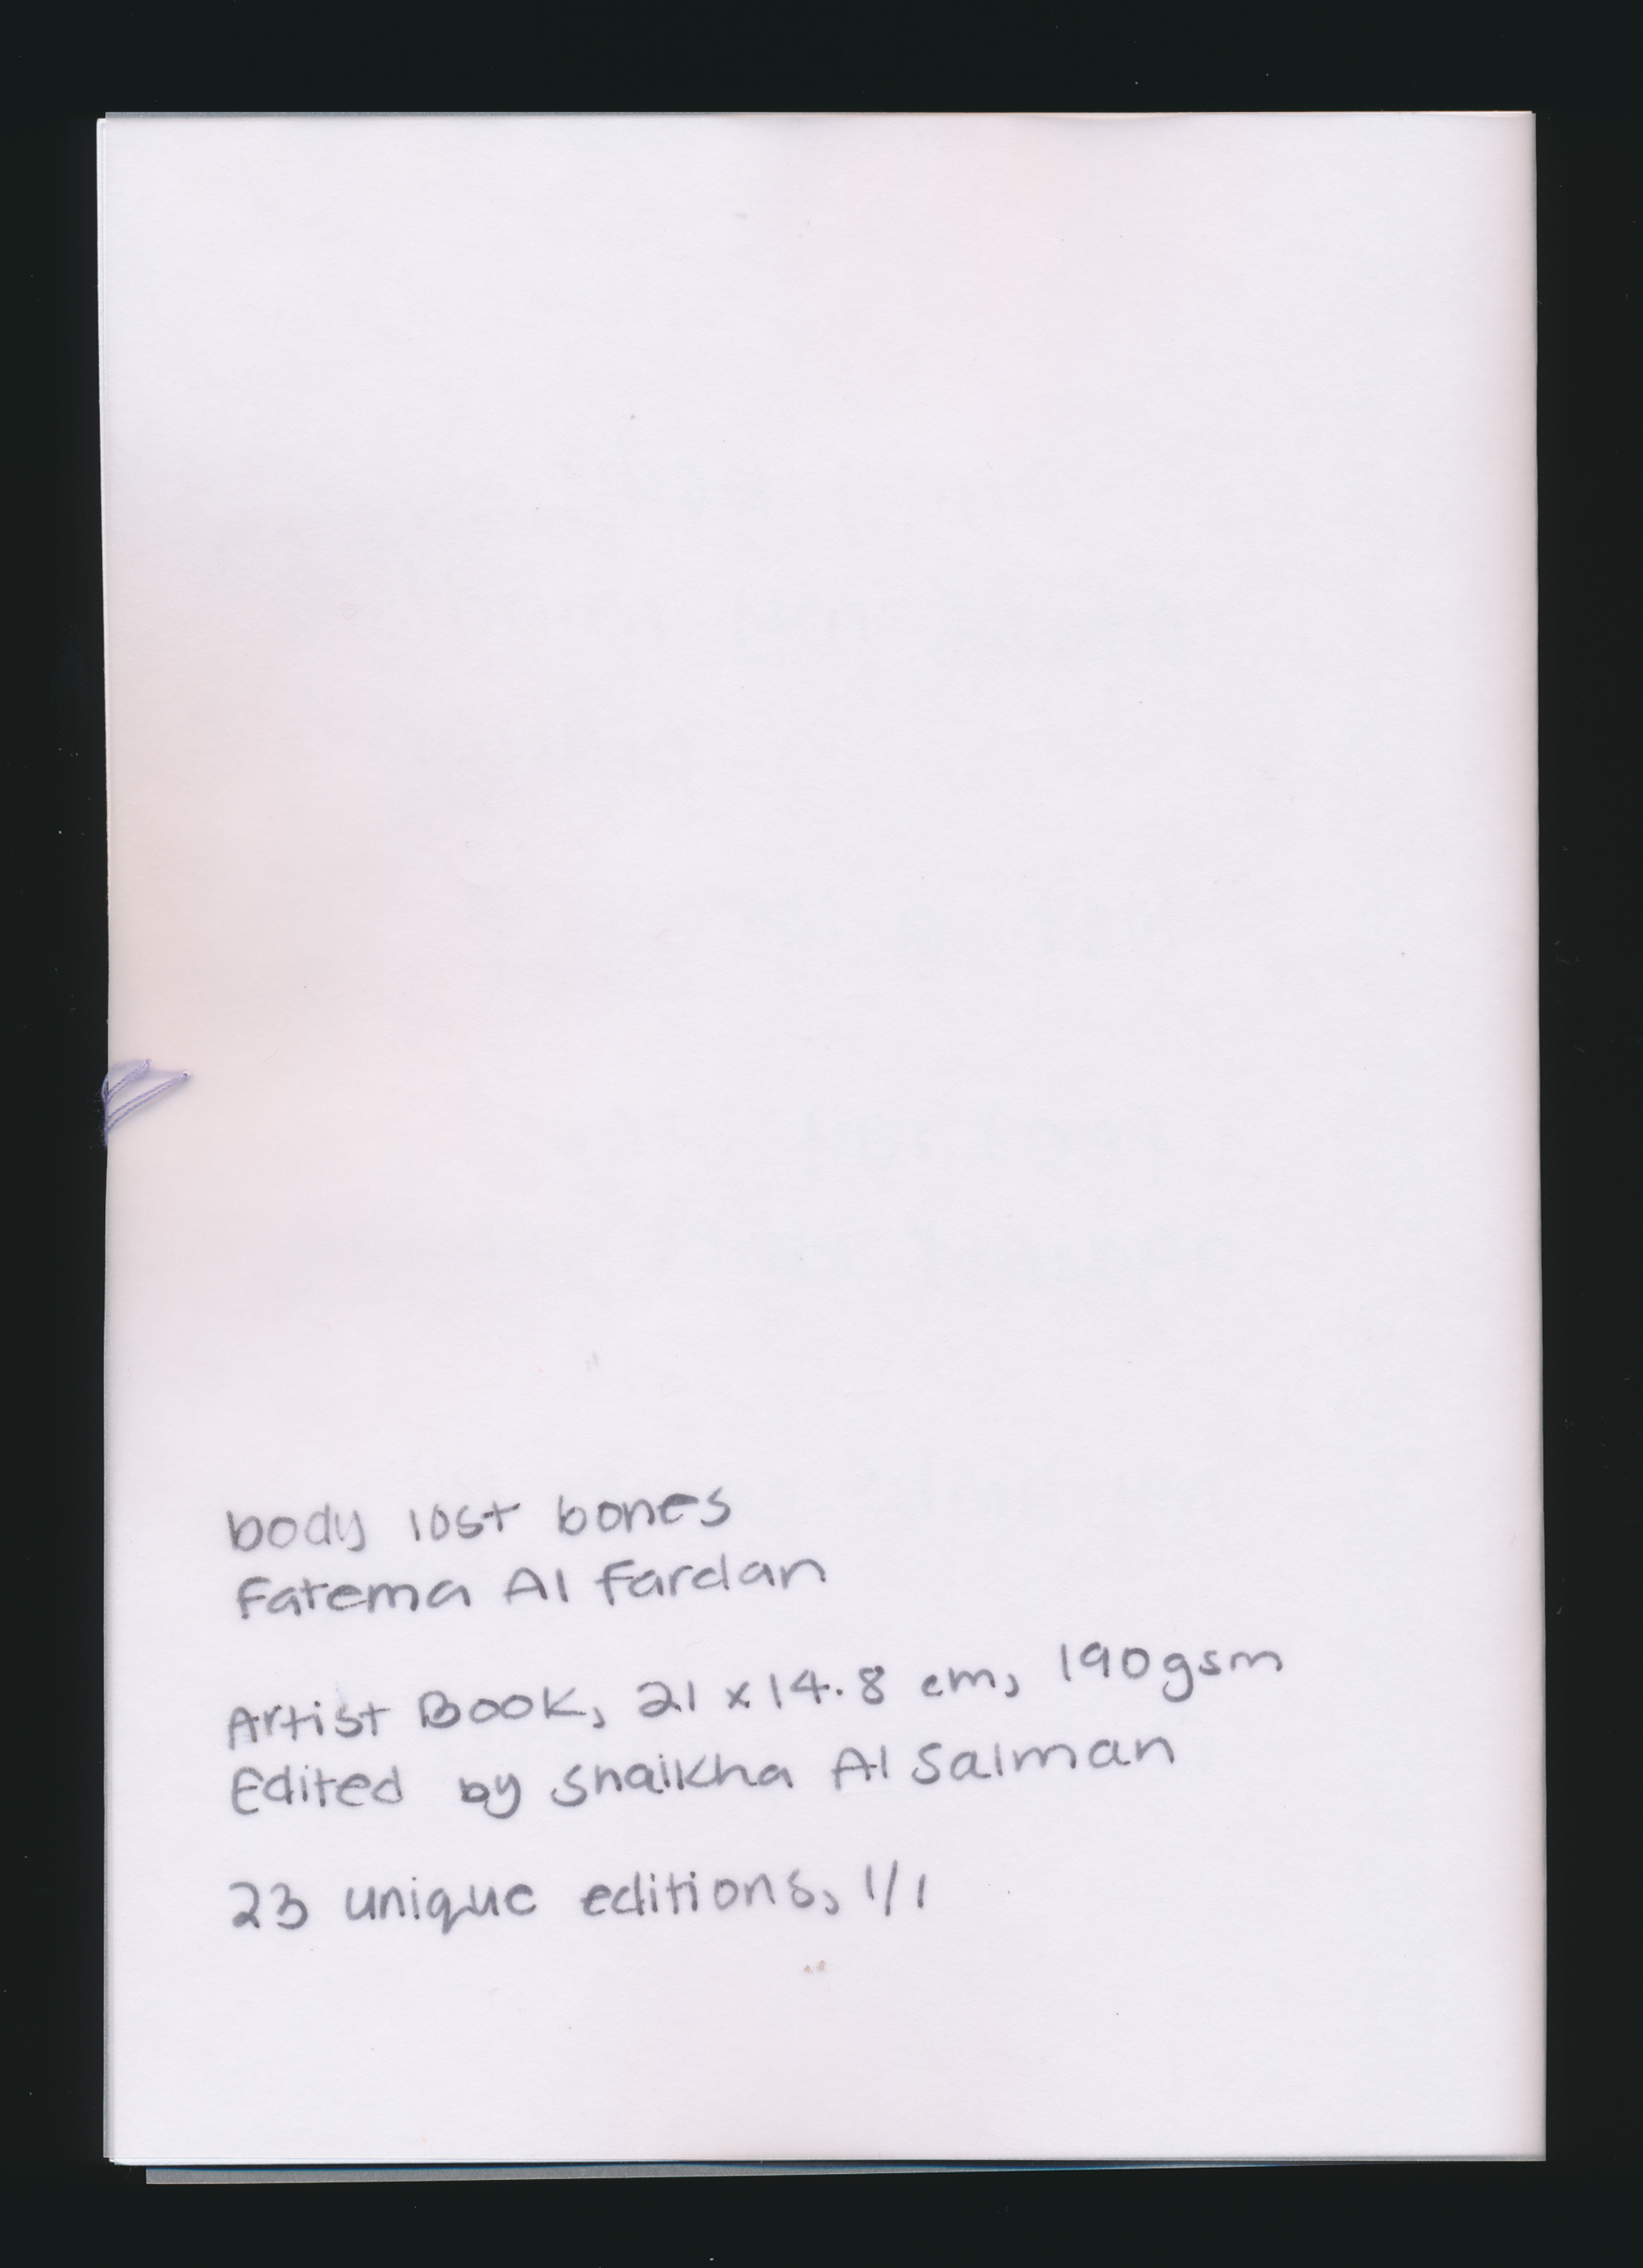 body lost bones
Fatema Al Fardan
Artist Book, 21 x 14.8 cm, 190gsm
Edited by Shaikha Al Salman
23 unique editions, 1/1